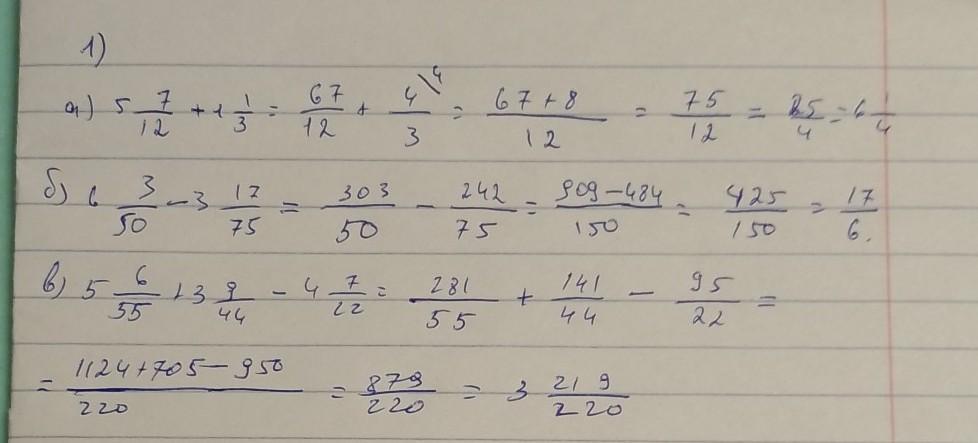 1)
а) 5 7/12 + 1 1/3 = 67/12 + 4/3 \4 = 67+8/12 = 75/12 = 25/4 = 6 1/4
б) 6 3/50 - 3 17/75 = 303/50 - 242/75 = 909-484/150 = 425/150 = 17/6.
в) 5 6/55 + 3 9/44 - 4 7/22 = 281/55 + 141/44 - 95/22 =
= 1124+705-950/220 = 879/220 = 3 219/220